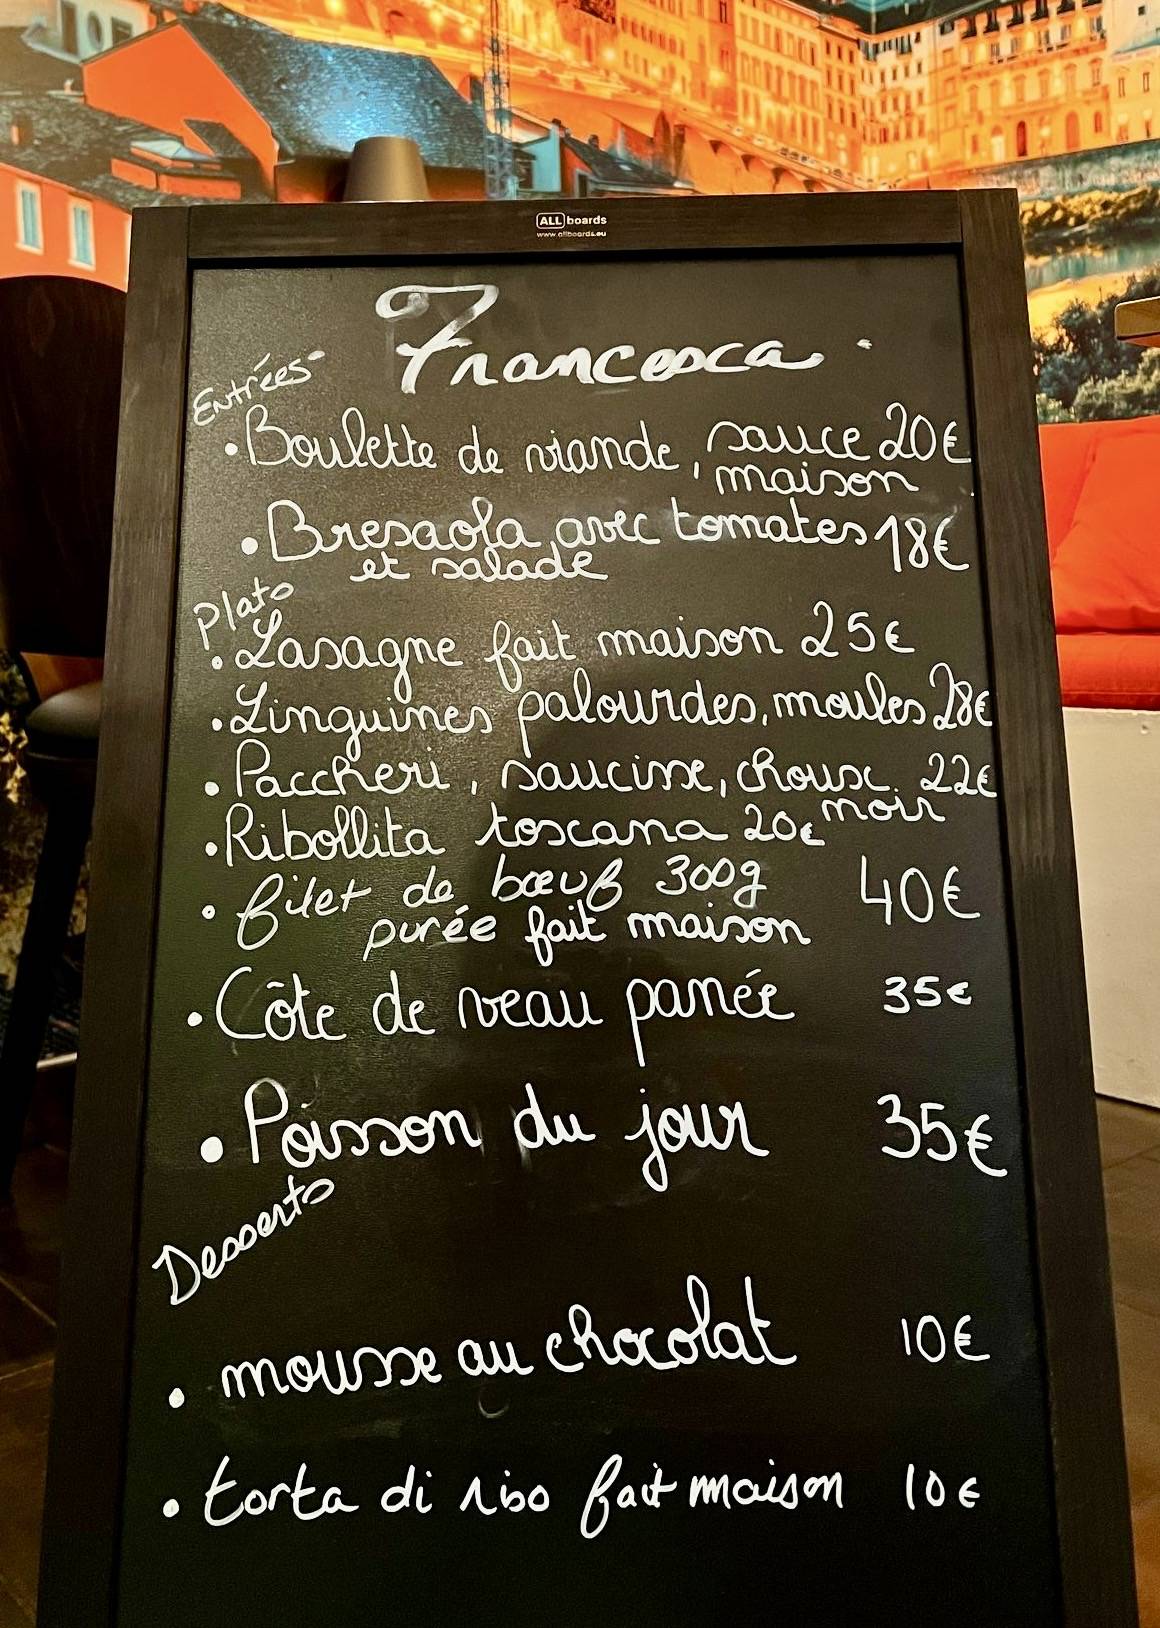 ALL boards
www.allboards.eu
Francesca
Entrées
• Boulette de viande, sauce 20€
maison
• Bresaola avec tomates 18€
et salade
Plats
• Lasagne fait maison 25€
• Linguines palourdes, moules 28€
• Paccheri, saucisse, choux 22€
noir
• Ribollita toscana 20€
• filet de bœuf 300g 40€
purée fait maison
• Côte de veau panée 35€
• Poisson du jour 35€
Desserts
• mousse au chocolat 10€
• torta di riso fait maison 10€